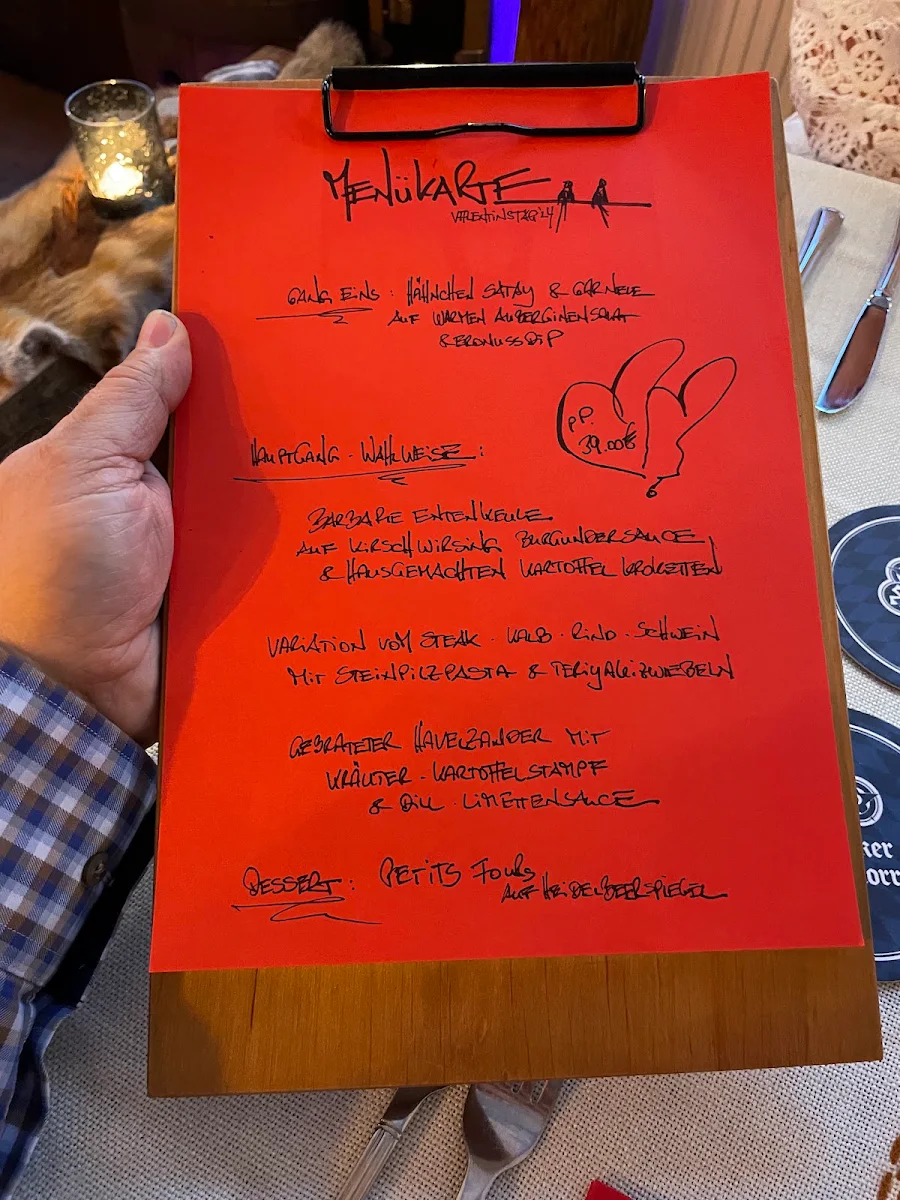 MENÜKARTE
VALENTINSTAG'24
GANG EINS: HÄHNCHEN SATAY & GARNELE
AUF WARMEN AUBERGINENSALAT
& ERDNUSSDIP
P.P.
39.00€
HAUPTGANG - WAHLWEISE:
BARBARIE ENTENKEULE
AUF KIRSCHWIRSING BURGUNDERSAUCE
& HAUSGEMACHTEN KARTOFFEL KROKETTEN
VARIATION VOM STEAK - KALB - RIND - SCHWEIN
MIT STEINPILZPASTA & TERIYAKIZWIEBELN
GEBRATETER HAVELZANDER MIT
KRÄUTER-KARTOFFELSTAMPF
& DILL-LIMETTENSAUCE
DESSERT: PETITS FOURS
AUF HEIDELBEERSPIEGEL